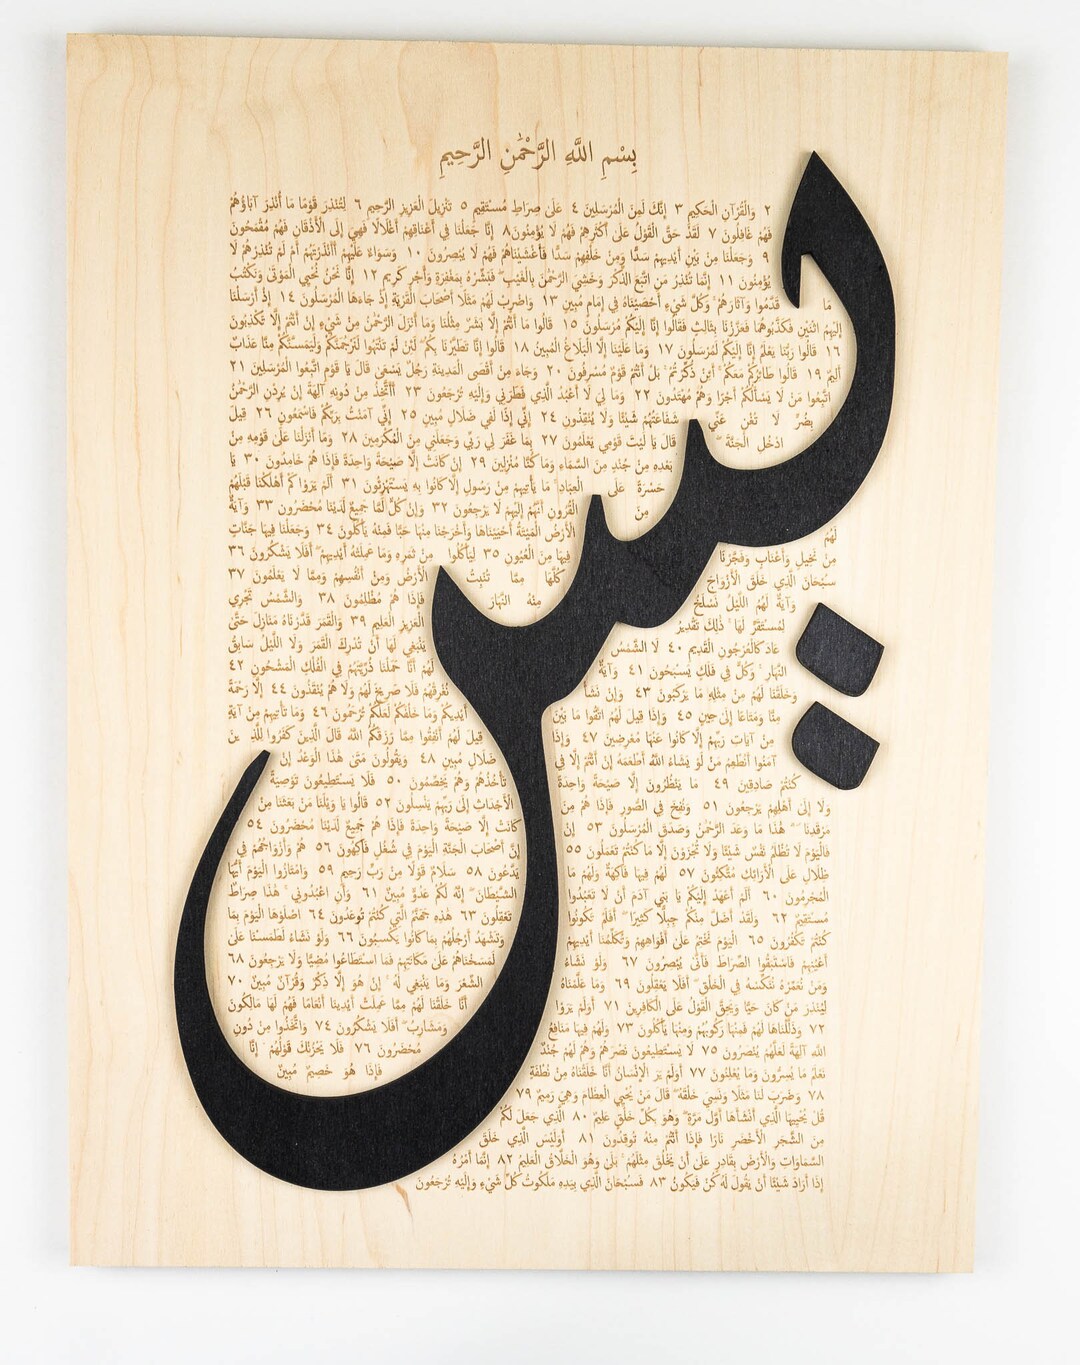 بِسْمِ اللَّهِ الرَّحْمَٰنِ الرَّحِيمِ
يس
٢ وَالْقُرْآنِ الْحَكِيمِ ٣ إِنَّكَ لَمِنَ الْمُرْسَلِينَ ٤ عَلَىٰ صِرَاطٍ مُسْتَقِيمٍ ٥ تَنْزِيلَ الْعَزِيزِ الرَّحِيمِ ٦ لِتُنْذِرَ قَوْمًا مَا أُنْذِرَ آبَاؤُهُمْ
فَهُمْ غَافِلُونَ ٧ لَقَدْ حَقَّ الْقَوْلُ عَلَىٰ أَكْثَرِهِمْ فَهُمْ لَا يُؤْمِنُونَ ٨ إِنَّا جَعَلْنَا فِي أَعْنَاقِهِمْ أَغْلَالًا فَهِيَ إِلَى الْأَذْقَانِ فَهُمْ مُقْمَحُونَ
٩ وَجَعَلْنَا مِنْ بَيْنِ أَيْدِيهِمْ سَدًّا وَمِنْ خَلْفِهِمْ سَدًّا فَأَغْشَيْنَاهُمْ فَهُمْ لَا يُبْصِرُونَ ١٠ وَسَوَاءٌ عَلَيْهِمْ أَأَنْذَرْتَهُمْ أَمْ لَمْ تُنْذِرْهُمْ لَا
يُؤْمِنُونَ ١١ إِنَّمَا تُنْذِرُ مَنِ اتَّبَعَ الذِّكْرَ وَخَشِيَ الرَّحْمَٰنَ بِالْغَيْبِ ۖ فَبَشِّرْهُ بِمَغْفِرَةٍ وَأَجْرٍ كَرِيمٍ ١٢ إِنَّا نَحْنُ نُحْيِي الْمَوْتَىٰ وَنَكْتُبُ
مَا قَدَّمُوا وَآثَارَهُمْ ۚ وَكُلَّ شَيْءٍ أَحْصَيْنَاهُ فِي إِمَامٍ مُبِينٍ ١٣ وَاضْرِبْ لَهُمْ مَثَلًا أَصْحَابَ الْقَرْيَةِ إِذْ جَاءَهَا الْمُرْسَلُونَ ١٤ إِذْ أَرْسَلْنَا
إِلَيْهِمُ اثْنَيْنِ فَكَذَّبُوهُمَا فَعَزَّزْنَا بِثَالِثٍ فَقَالُوا إِنَّا إِلَيْكُمْ مُرْسَلُونَ ١٥ قَالُوا مَا أَنْتُمْ إِلَّا بَشَرٌ مِثْلُنَا وَمَا أَنْزَلَ الرَّحْمَٰنُ مِنْ شَيْءٍ إِنْ أَنْتُمْ إِلَّا تَكْذِبُونَ
١٦ قَالُوا رَبُّنَا يَعْلَمُ إِنَّا إِلَيْكُمْ لَمُرْسَلُونَ ١٧ وَمَا عَلَيْنَا إِلَّا الْبَلَاغُ الْمُبِينُ ١٨ قَالُوا إِنَّا تَطَيَّرْنَا بِكُمْ ۖ لَئِنْ لَمْ تَنْتَهُوا لَنَرْجُمَنَّكُمْ وَلَيَمَسَّنَّكُمْ مِنَّا عَذَابٌ
أَلِيمٌ ١٩ قَالُوا طَائِرُكُمْ مَعَكُمْ ۚ أَئِنْ ذُكِّرْتُمْ ۚ بَلْ أَنْتُمْ قَوْمٌ مُسْرِفُونَ ٢٠ وَجَاءَ مِنْ أَقْصَى الْمَدِينَةِ رَجُلٌ يَسْعَىٰ قَالَ يَا قَوْمِ اتَّبِعُوا الْمُرْسَلِينَ ٢١
اتَّبِعُوا مَنْ لَا يَسْأَلُكُمْ أَجْرًا وَهُمْ مُهْتَدُونَ ٢٢ وَمَا لِيَ لَا أَعْبُدُ الَّذِي فَطَرَنِي وَإِلَيْهِ تُرْجَعُونَ ٢٣ أَأَتَّخِذُ مِنْ دُونِهِ آلِهَةً إِنْ يُرِدْنِ الرَّحْمَٰنُ
بِضُرٍّ لَا تُغْنِ عَنِّي شَفَاعَتُهُمْ شَيْئًا وَلَا يُنْقِذُونِ ٢٤ إِنِّي إِذًا لَفِي ضَلَالٍ مُبِينٍ ٢٥ إِنِّي آمَنْتُ بِرَبِّكُمْ فَاسْمَعُونِ ٢٦ قِيلَ
ادْخُلِ الْجَنَّةَ ۖ قَالَ يَا لَيْتَ قَوْمِي يَعْلَمُونَ ٢٧ بِمَا غَفَرَ لِي رَبِّي وَجَعَلَنِي مِنَ الْمُكْرَمِينَ ٢٨ وَمَا أَنْزَلْنَا عَلَىٰ قَوْمِهِ مِنْ
بَعْدِهِ مِنْ جُنْدٍ مِنَ السَّمَاءِ وَمَا كُنَّا مُنْزِلِينَ ٢٩ إِنْ كَانَتْ إِلَّا صَيْحَةً وَاحِدَةً فَإِذَا هُمْ خَامِدُونَ ٣٠ يَا
حَسْرَةً عَلَى الْعِبَادِ ۚ مَا يَأْتِيهِمْ مِنْ رَسُولٍ إِلَّا كَانُوا بِهِ يَسْتَهْزِئُونَ ٣١ أَلَمْ يَرَوْا كَمْ أَهْلَكْنَا قَبْلَهُمْ
مِنَ الْقُرُونِ أَنَّهُمْ إِلَيْهِمْ لَا يَرْجِعُونَ ٣٢ وَإِنْ كُلٌّ لَمَّا جَمِيعٌ لَدَيْنَا مُحْضَرُونَ ٣٣ وَآيَةٌ
لَهُمُ الْأَرْضُ الْمَيْتَةُ أَحْيَيْنَاهَا وَأَخْرَجْنَا مِنْهَا حَبًّا فَمِنْهُ يَأْكُلُونَ ٣٤ وَجَعَلْنَا فِيهَا جَنَّاتٍ
مِنْ نَخِيلٍ وَأَعْنَابٍ وَفَجَّرْنَا فِيهَا مِنَ الْعُيُونِ ٣٥ لِيَأْكُلُوا مِنْ ثَمَرِهِ وَمَا عَمِلَتْهُ أَيْدِيهِمْ ۖ أَفَلَا يَشْكُرُونَ ٣٦
سُبْحَانَ الَّذِي خَلَقَ الْأَزْوَاجَ كُلَّهَا مِمَّا تُنْبِتُ الْأَرْضُ وَمِنْ أَنْفُسِهِمْ وَمِمَّا لَا يَعْلَمُونَ ٣٧
وَآيَةٌ لَهُمُ اللَّيْلُ نَسْلَخُ مِنْهُ النَّهَارَ فَإِذَا هُمْ مُظْلِمُونَ ٣٨ وَالشَّمْسُ تَجْرِي
لِمُسْتَقَرٍّ لَهَا ۚ ذَٰلِكَ تَقْدِيرُ الْعَزِيزِ الْعَلِيمِ ٣٩ وَالْقَمَرَ قَدَّرْنَاهُ مَنَازِلَ حَتَّىٰ
عَادَ كَالْعُرْجُونِ الْقَدِيمِ ٤٠ لَا الشَّمْسُ يَنْبَغِي لَهَا أَنْ تُدْرِكَ الْقَمَرَ وَلَا اللَّيْلُ سَابِقُ
النَّهَارِ ۚ وَكُلٌّ فِي فَلَكٍ يَسْبَحُونَ ٤١ وَآيَةٌ لَهُمْ أَنَّا حَمَلْنَا ذُرِّيَّتَهُمْ فِي الْفُلْكِ الْمَشْحُونِ ٤٢
وَخَلَقْنَا لَهُمْ مِنْ مِثْلِهِ مَا يَرْكَبُونَ ٤٣ وَإِنْ نَشَأْ نُغْرِقْهُمْ فَلَا صَرِيخَ لَهُمْ وَلَا هُمْ يُنْقَذُونَ ٤٤ إِلَّا رَحْمَةً
مِنَّا وَمَتَاعًا إِلَىٰ حِينٍ ٤٥ وَإِذَا قِيلَ لَهُمُ اتَّقُوا مَا بَيْنَ أَيْدِيكُمْ وَمَا خَلْفَكُمْ لَعَلَّكُمْ تُرْحَمُونَ ٤٦ وَمَا تَأْتِيهِمْ مِنْ آيَةٍ
مِنْ آيَاتِ رَبِّهِمْ إِلَّا كَانُوا عَنْهَا مُعْرِضِينَ ٤٧ وَإِذَا قِيلَ لَهُمْ أَنْفِقُوا مِمَّا رَزَقَكُمُ اللَّهُ قَالَ الَّذِينَ كَفَرُوا لِلَّذِينَ
آمَنُوا أَنُطْعِمُ مَنْ لَوْ يَشَاءُ اللَّهُ أَطْعَمَهُ إِنْ أَنْتُمْ إِلَّا فِي ضَلَالٍ مُبِينٍ ٤٨ وَيَقُولُونَ مَتَىٰ هَٰذَا الْوَعْدُ إِنْ
كُنْتُمْ صَادِقِينَ ٤٩ مَا يَنْظُرُونَ إِلَّا صَيْحَةً وَاحِدَةً تَأْخُذُهُمْ وَهُمْ يَخِصِّمُونَ ٥٠ فَلَا يَسْتَطِيعُونَ تَوْصِيَةً
وَلَا إِلَىٰ أَهْلِهِمْ يَرْجِعُونَ ٥١ وَنُفِخَ فِي الصُّورِ فَإِذَا هُمْ مِنَ الْأَجْدَاثِ إِلَىٰ رَبِّهِمْ يَنْسِلُونَ ٥٢ قَالُوا يَا وَيْلَنَا مَنْ بَعَثَنَا مِنْ
مَرْقَدِنَا ۜ ۗ هَٰذَا مَا وَعَدَ الرَّحْمَٰنُ وَصَدَقَ الْمُرْسَلُونَ ٥٣ إِنْ كَانَتْ إِلَّا صَيْحَةً وَاحِدَةً فَإِذَا هُمْ جَمِيعٌ لَدَيْنَا مُحْضَرُونَ ٥٤
فَالْيَوْمَ لَا تُظْلَمُ نَفْسٌ شَيْئًا وَلَا تُجْزَوْنَ إِلَّا مَا كُنْتُمْ تَعْمَلُونَ ٥٥ إِنَّ أَصْحَابَ الْجَنَّةِ الْيَوْمَ فِي شُغُلٍ فَاكِهُونَ ٥٦ هُمْ وَأَزْوَاجُهُمْ فِي
ظِلَالٍ عَلَى الْأَرَائِكِ مُتَّكِئُونَ ٥٧ لَهُمْ فِيهَا فَاكِهَةٌ وَلَهُمْ مَا يَدَّعُونَ ٥٨ سَلَامٌ قَوْلًا مِنْ رَبٍّ رَحِيمٍ ٥٩ وَامْتَازُوا الْيَوْمَ أَيُّهَا
الْمُجْرِمُونَ ٦٠ أَلَمْ أَعْهَدْ إِلَيْكُمْ يَا بَنِي آدَمَ أَنْ لَا تَعْبُدُوا الشَّيْطَانَ ۖ إِنَّهُ لَكُمْ عَدُوٌّ مُبِينٌ ٦١ وَأَنِ اعْبُدُونِي ۚ هَٰذَا صِرَاطٌ
مُسْتَقِيمٌ ٦٢ وَلَقَدْ أَضَلَّ مِنْكُمْ جِبِلًّا كَثِيرًا ۖ أَفَلَمْ تَكُونُوا تَعْقِلُونَ ٦٣ هَٰذِهِ جَهَنَّمُ الَّتِي كُنْتُمْ تُوعَدُونَ ٦٤ اصْلَوْهَا الْيَوْمَ بِمَا
كُنْتُمْ تَكْفُرُونَ ٦٥ الْيَوْمَ نَخْتِمُ عَلَىٰ أَفْوَاهِهِمْ وَتُكَلِّمُنَا أَيْدِيهِمْ وَتَشْهَدُ أَرْجُلُهُمْ بِمَا كَانُوا يَكْسِبُونَ ٦٦ وَلَوْ نَشَاءُ لَطَمَسْنَا عَلَىٰ
أَعْيُنِهِمْ فَاسْتَبَقُوا الصِّرَاطَ فَأَنَّىٰ يُبْصِرُونَ ٦٧ وَلَوْ نَشَاءُ لَمَسَخْنَاهُمْ عَلَىٰ مَكَانَتِهِمْ فَمَا اسْتَطَاعُوا مُضِيًّا وَلَا يَرْجِعُونَ ٦٨
وَمَنْ نُعَمِّرْهُ نُنَكِّسْهُ فِي الْخَلْقِ ۖ أَفَلَا يَعْقِلُونَ ٦٩ وَمَا عَلَّمْنَاهُ الشِّعْرَ وَمَا يَنْبَغِي لَهُ ۚ إِنْ هُوَ إِلَّا ذِكْرٌ وَقُرْآنٌ مُبِينٌ ٧٠
لِيُنْذِرَ مَنْ كَانَ حَيًّا وَيَحِقَّ الْقَوْلُ عَلَى الْكَافِرِينَ ٧١ أَوَلَمْ يَرَوْا أَنَّا خَلَقْنَا لَهُمْ مِمَّا عَمِلَتْ أَيْدِينَا أَنْعَامًا فَهُمْ لَهَا مَالِكُونَ
٧٢ وَذَلَّلْنَاهَا لَهُمْ فَمِنْهَا رَكُوبُهُمْ وَمِنْهَا يَأْكُلُونَ ٧٣ وَلَهُمْ فِيهَا مَنَافِعُ وَمَشَارِبُ ۖ أَفَلَا يَشْكُرُونَ ٧٤ وَاتَّخَذُوا مِنْ دُونِ
اللَّهِ آلِهَةً لَعَلَّهُمْ يُنْصَرُونَ ٧٥ لَا يَسْتَطِيعُونَ نَصْرَهُمْ وَهُمْ لَهُمْ جُنْدٌ مُحْضَرُونَ ٧٦ فَلَا يَحْزُنْكَ قَوْلُهُمْ ۘ إِنَّا
نَعْلَمُ مَا يُسِرُّونَ وَمَا يُعْلِنُونَ ٧٧ أَوَلَمْ يَرَ الْإِنْسَانُ أَنَّا خَلَقْنَاهُ مِنْ نُطْفَةٍ فَإِذَا هُوَ خَصِيمٌ مُبِينٌ
٧٨ وَضَرَبَ لَنَا مَثَلًا وَنَسِيَ خَلْقَهُ ۖ قَالَ مَنْ يُحْيِي الْعِظَامَ وَهِيَ رَمِيمٌ ٧٩
قُلْ يُحْيِيهَا الَّذِي أَنْشَأَهَا أَوَّلَ مَرَّةٍ ۖ وَهُوَ بِكُلِّ خَلْقٍ عَلِيمٌ ٨٠ الَّذِي جَعَلَ لَكُمْ
مِنَ الشَّجَرِ الْأَخْضَرِ نَارًا فَإِذَا أَنْتُمْ مِنْهُ تُوقِدُونَ ٨١ أَوَلَيْسَ الَّذِي خَلَقَ
السَّمَاوَاتِ وَالْأَرْضَ بِقَادِرٍ عَلَىٰ أَنْ يَخْلُقَ مِثْلَهُمْ ۚ بَلَىٰ وَهُوَ الْخَلَّاقُ الْعَلِيمُ ٨٢ إِنَّمَا أَمْرُهُ
إِذَا أَرَادَ شَيْئًا أَنْ يَقُولَ لَهُ كُنْ فَيَكُونُ ٨٣ فَسُبْحَانَ الَّذِي بِيَدِهِ مَلَكُوتُ كُلِّ شَيْءٍ وَإِلَيْهِ تُرْجَعُونَ